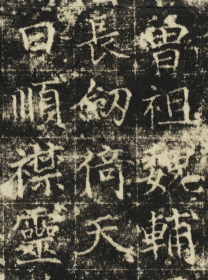 曾祖魏輔
長劒倚天
日順禖靈